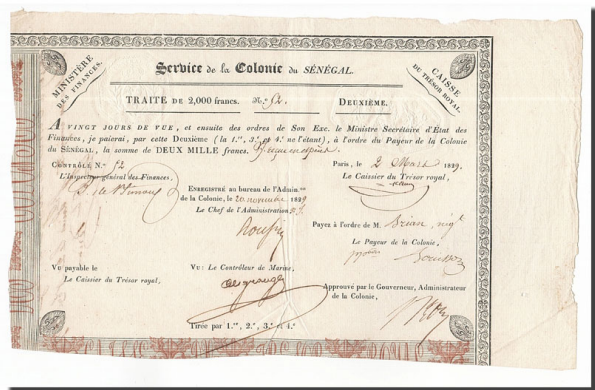 MINISTÈRE
DES FINANCES.
CAISSE
DU TRÉSOR ROYAL.
Service de la Colonie du SÉNÉGAL.
TRAITE DE 2,000 francs. N.º 52. DEUXIÈME.
A VINGT JOURS DE VUE, et ensuite des ordres de Son Exc. le Ministre Secrétaire d'État des
Finances, je paierai, par cette Deuxième (la 1.re, 3.e et 4.e ne l'étant), à l'ordre du Payeur de la Colonie
du SÉNÉGAL, la somme de DEUX MILLE francs.
CONTRÔLE N.º 52
L'Inspecteur général des Finances,
Paris, le 2 Mars 1829.
Le Caissier du Trésor royal,
ENREGISTRÉ au bureau de l'Admin.on
de la Colonie, le 20 novembre 1829
Le Chef de l'Administration
Payez à l'ordre de M. Brian, nég.t
Le Payeur de la Colonie,
VU payable le
Le Caissier du Trésor royal,
VU : Le Contrôleur de Marine,
Approuvé par le Gouverneur, Administrateur
de la Colonie.
Tirée par 1.re, 2.e, 3.e et 4.e